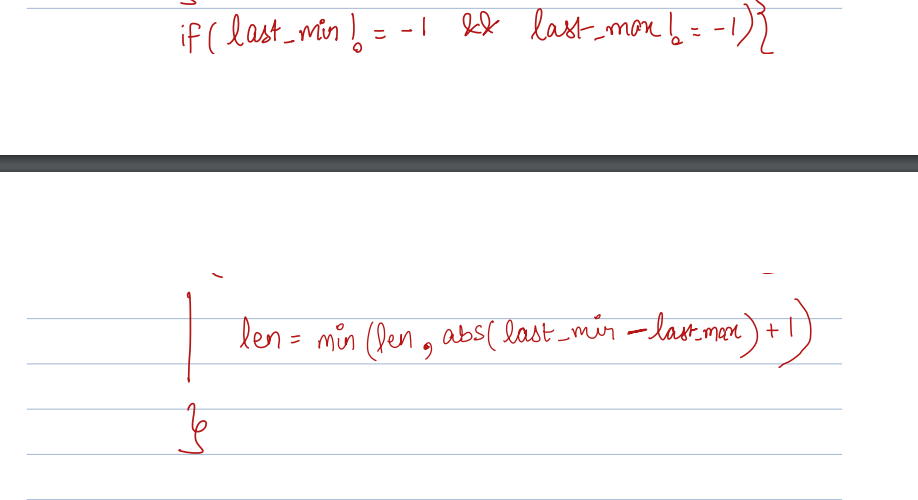 if( last_min != -1 && last_max != -1){
len = min (len, abs( last_min - last_max) + 1)
}